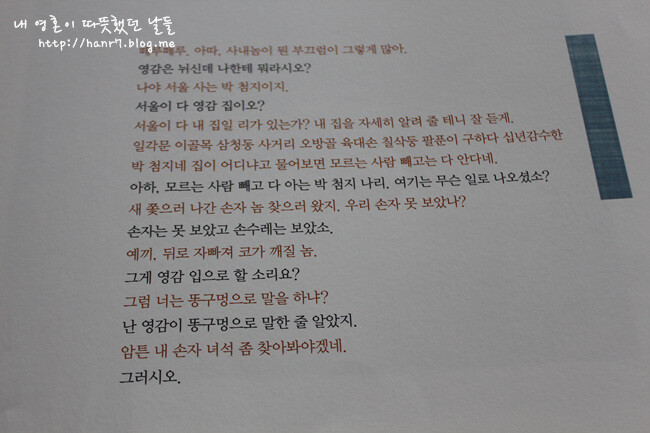 내 영혼이 따뜻했던 날들
http://hanr7.blog.me
떼루떼루. 아따. 사내놈이 뭔 부끄럼이 그렇게 많아.
영감은 뉘신데 나한테 뭐라시오?
나야 서울 사는 박 첨지이지.
서울이 다 영감 집이오?
서울이 다 내 집일 리가 있는가? 내 집을 자세히 알려 줄 테니 잘 듣게.
일각문 이골목 삼청동 사거리 오방골 육대손 칠삭둥 팔푼이 구하다 십년감수한
박 첨지네 집이 어디냐고 물어보면 모르는 사람 빼고는 다 안다네.
아하, 모르는 사람 빼고 다 아는 박 첨지 나리. 여기는 무슨 일로 나오셨소?
새 쫓으러 나간 손자 놈 찾으러 왔지. 우리 손자 못 보았나?
손자는 못 보았고 손수레는 보았소.
예끼, 뒤로 자빠져 코가 깨질 놈.
그게 영감 입으로 할 소리요?
그럼 너는 똥구멍으로 말을 하냐?
난 영감이 똥구멍으로 말한 줄 알았지.
암튼 내 손자 녀석 좀 찾아봐야겠네.
그러시오.